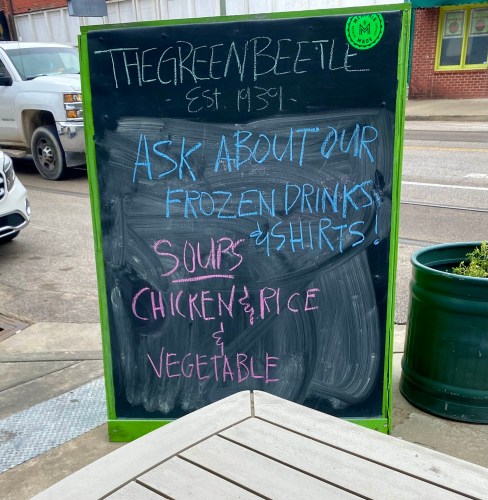 THE GREEN BEETLE
- Est. 1939 -
ASK ABOUT OUR
FROZEN DRINKS
& SHIRTS!
SOUPS
CHICKEN & RICE
&
VEGETABLE